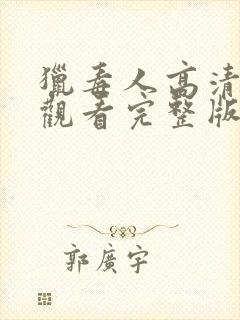 獵毒人高清
觀看完整版
郭廣宇